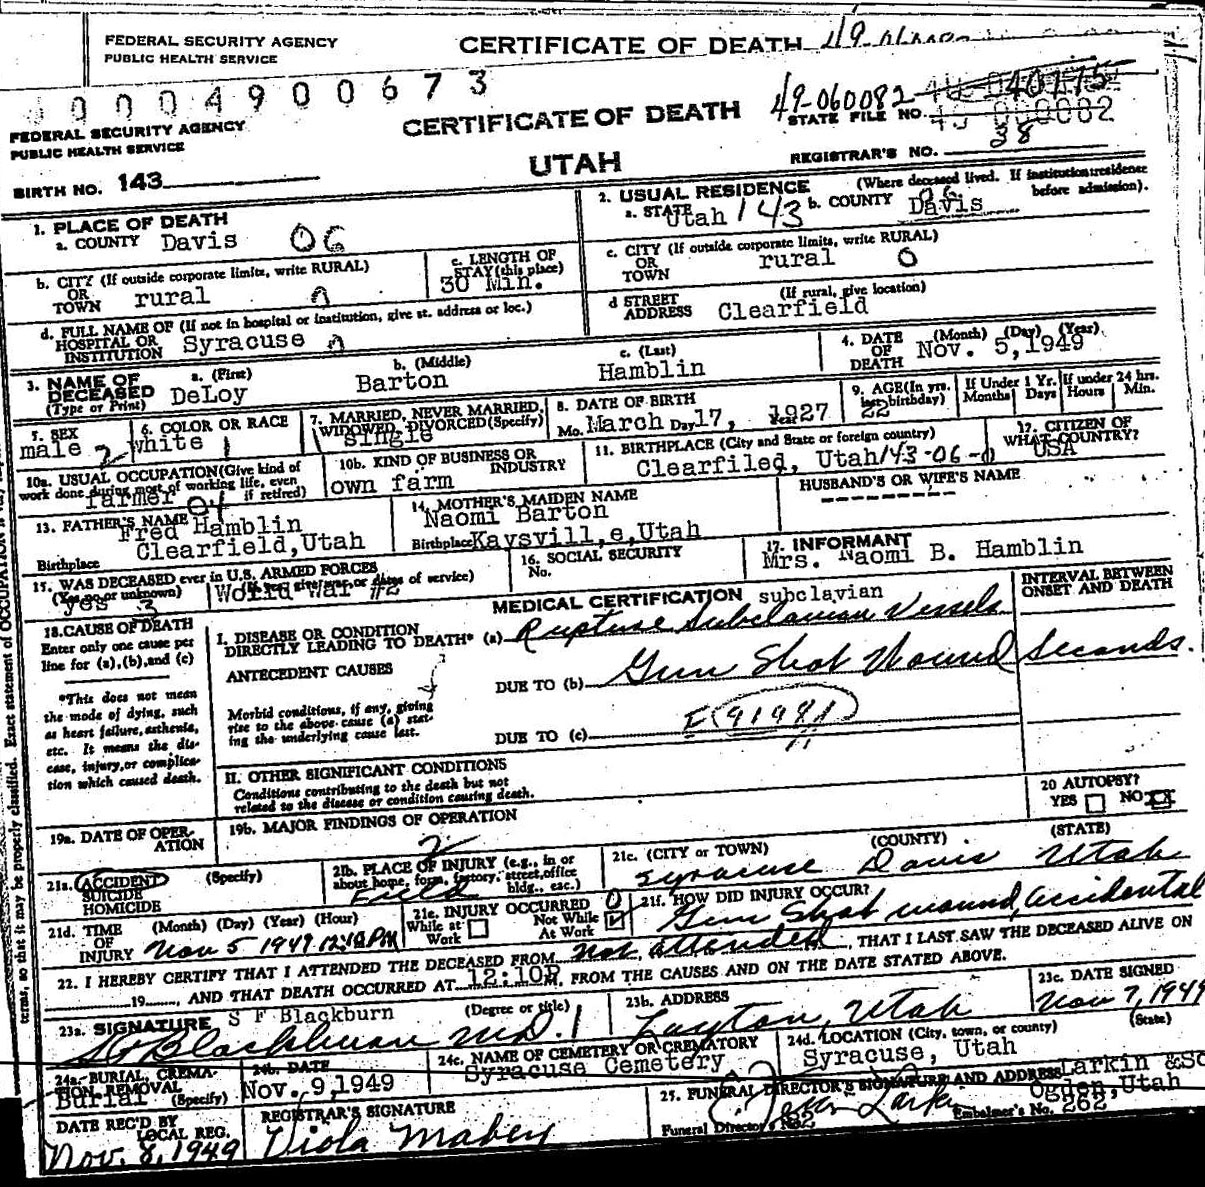 FEDERAL SECURITY AGENCY
PUBLIC HEALTH SERVICE
CERTIFICATE OF DEATH
00004900673
FEDERAL SECURITY AGENCY
PUBLIC HEALTH SERVICE
CERTIFICATE OF DEATH
49-060082
STATE FILE NO.
UTAH
REGISTRAR'S NO. 38
BIRTH NO. 143
1. PLACE OF DEATH
a. COUNTY Davis 06
2. USUAL RESIDENCE (Where deceased lived. If institution: residence before admission).
a. STATE Utah 143 b. COUNTY Davis 06
b. CITY (If outside corporate limits, write RURAL)
OR
TOWN rural
c. LENGTH OF
STAY (this place)
30 Min.
c. CITY (If outside corporate limits, write RURAL)
OR
TOWN rural 0
d. FULL NAME OF (If not in hospital or institution, give st. address or loc.)
HOSPITAL OR
INSTITUTION Syracuse
d STREET (If rural, give location)
ADDRESS Clearfield
3. NAME OF
DECEASED
(Type or Print)
a. (First) DeLoy
b. (Middle) Barton
c. (Last) Hamblin
4. DATE (Month) (Day) (Year)
OF
DEATH Nov. 5,1949
5. SEX
male 2
6. COLOR OR RACE
White 1
7. MARRIED, NEVER MARRIED,
WIDOWED, DIVORCED (Specify)
single
8. DATE OF BIRTH
Mo. March Day 17, Year 1927
9. AGE (In yrs.
last birthday)
22
If Under 1 Yr.
Months Days
If under 24 hrs.
Hours Min.
10a. USUAL OCCUPATION (Give kind of
work done during most of working life, even
if retired)
farmer 04
10b. KIND OF BUSINESS OR
INDUSTRY
own farm
11. BIRTHPLACE (City and State or foreign country)
Clearfiled, Utah 143-06-0
12. CITIZEN OF
WHAT COUNTRY?
USA
13. FATHER'S NAME
Fred Hamblin
Birthplace Clearfield,Utah
14. MOTHER'S MAIDEN NAME
Naomi Barton
Birthplace Kaysvill,e,Utah
HUSBAND'S OR WIFE'S NAME
---------
15. WAS DECEASED ever in U.S. ARMED FORCES
(Yes, no or unknown) (If yes, give war or dates of service)
yes 3 World War #2
16. SOCIAL SECURITY
No.
17. INFORMANT
Mrs. Naomi B. Hamblin
MEDICAL CERTIFICATION subclavian
INTERVAL BETWEEN
ONSET AND DEATH
18. CAUSE OF DEATH
Enter only one cause per
line for (a), (b), and (c)
*This does not mean
the mode of dying, such
as heart failure, asthenia,
etc. It means the dis-
ease, injury, or complica-
tion which caused death.
I. DISEASE OR CONDITION
DIRECTLY LEADING TO DEATH* (a) Rupture Subclavian Vessels
ANTECEDENT CAUSES
DUE TO (b) Gun Shot Wound Seconds.
Morbid conditions, if any, giving
rise to the above cause (a) stat-
ing the underlying cause last.
DUE TO (c)
II. OTHER SIGNIFICANT CONDITIONS
Conditions contributing to the death but not
related to the disease or condition causing death.
19a. DATE OF OPER-
ATION
19b. MAJOR FINDINGS OF OPERATION
20 AUTOPSY?
YES NO X
21a. ACCIDENT (Specify)
SUICIDE
HOMICIDE
21b. PLACE OF INJURY (e.g., in or
about home, farm, factory, street, office
bldg., etc.)
Field
21c. (CITY or TOWN) (COUNTY) (STATE)
Syracuse Davis Utah
21d. TIME (Month) (Day) (Year) (Hour)
OF
INJURY Nov 5 1949 12:10 PM
21e. INJURY OCCURRED
While at Work Not While At Work
21f. HOW DID INJURY OCCUR?
Gun Shot wound, accidental
22. I HEREBY CERTIFY THAT I ATTENDED THE DECEASED FROM Not attended, THAT I LAST SAW THE DECEASED ALIVE ON
19, AND THAT DEATH OCCURRED AT 12:10P M, FROM THE CAUSES AND ON THE DATE STATED ABOVE.
23a. SIGNATURE S F Blackburn (Degree or title)
S F Blackburn M.D. 1
23b. ADDRESS
Layton, Utah
23c. DATE SIGNED
Nov 7, 1949
24a. BURIAL, CREMA-
TION, REMOVAL
Burial (Specify)
24b. DATE
Nov. 9,1949
24c. NAME OF CEMETERY OR CREMATORY
Syracuse Cemetery
24d. LOCATION (City, town, or county) (State)
Syracuse, Utah
DATE REC'D BY
LOCAL REG.
Nov. 8, 1949
REGISTRAR'S SIGNATURE
Viola Mabey
25. FUNERAL DIRECTOR'S SIGNATURE AND ADDRESS Larkin & So
Ogden,Utah
Embalmer's No. 262
terms, so that it may be properly classified. Exact statement of OCCUPATION is